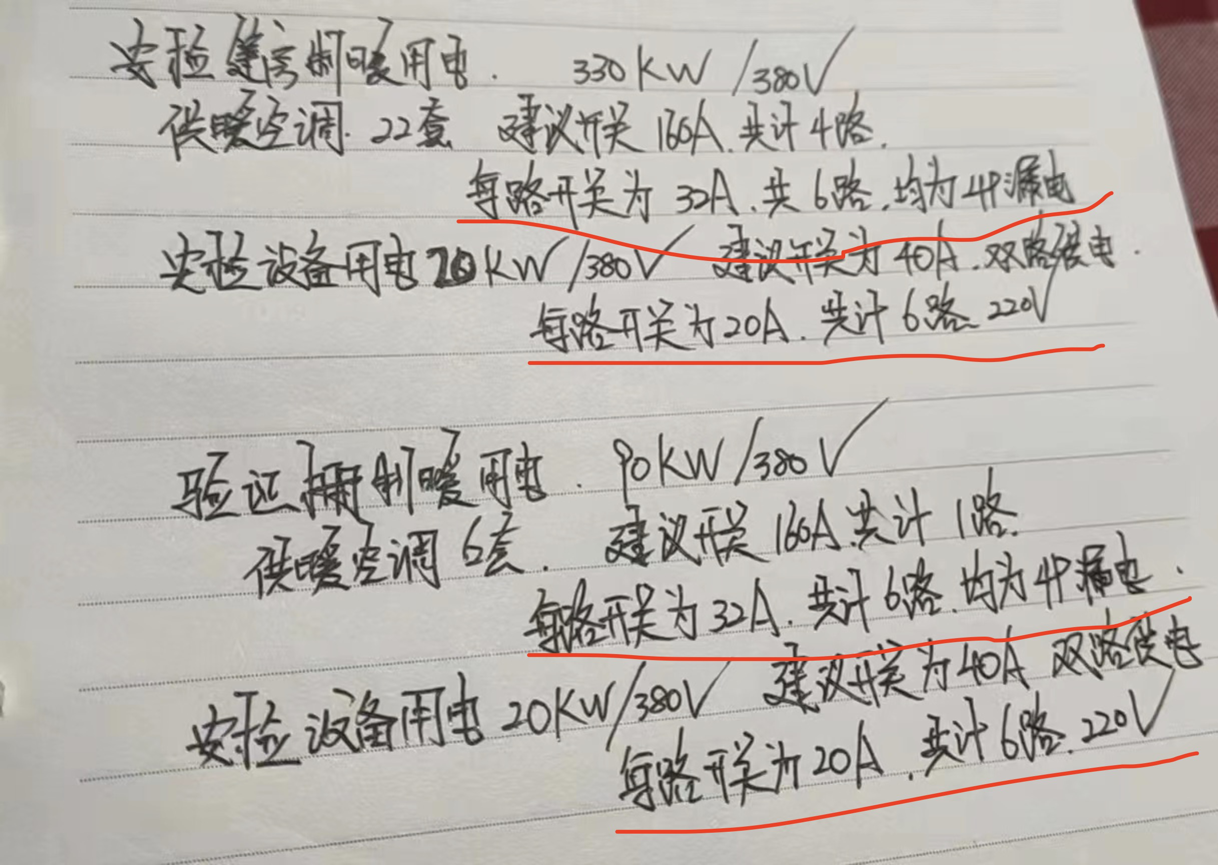 实验建房制暖用电. 330KW/380V
供暖空调.22套 建议开关160A.共计4路.
每路开关为32A.共6路.均为4P漏电
实验设备用电20KW/380V 建议开关为40A.双路供电.
每路开关为20A.共计6路 220V
验证棚制暖用电. 90KW/380V
供暖空调6套. 建议开关160A.共计1路.
每路开关为32A.共计6路.均为4P漏电.
实验设备用电20KW/380V 建议开关为40A 双路供电
每路开关为20A.共计6路.220V